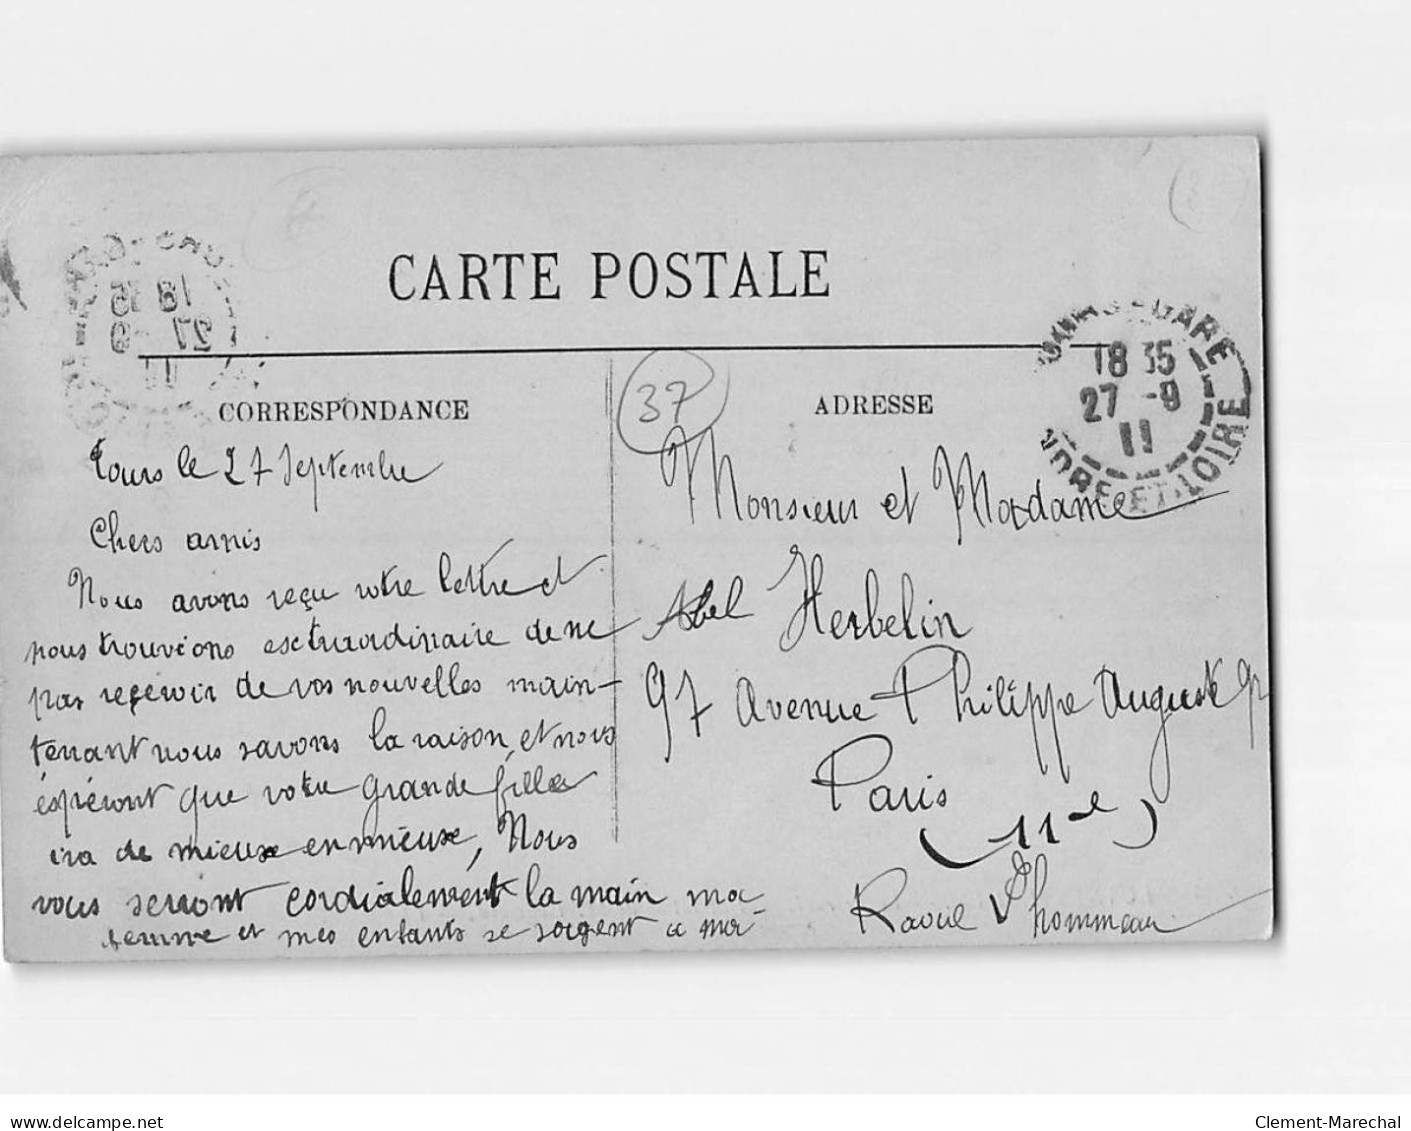 CARTE POSTALE
CORRESPONDANCE
ADRESSE
37
TOURS-GARE
18 35
27 -9
11
INDRE-ET-LOIRE
Tours le 27 Septembre
Chers amis
Nous avons reçu votre lettre et
nous trouvions esctraordinaire de ne
pas reçevoir de vos nouvelles main-
tenant nous savons la raison, et nous
éspéront que votre grande fille
ira de mieux en mieux, Nous
vous serront cordialement la main ma
femme et mes enfants se joigent a moi
Monsieur et Madame
Abel Herbelin
97 Avenue Philippe Auguste
Paris
(11e)
Raoul Lhommeau
delcampe.net
Clement-Marechal